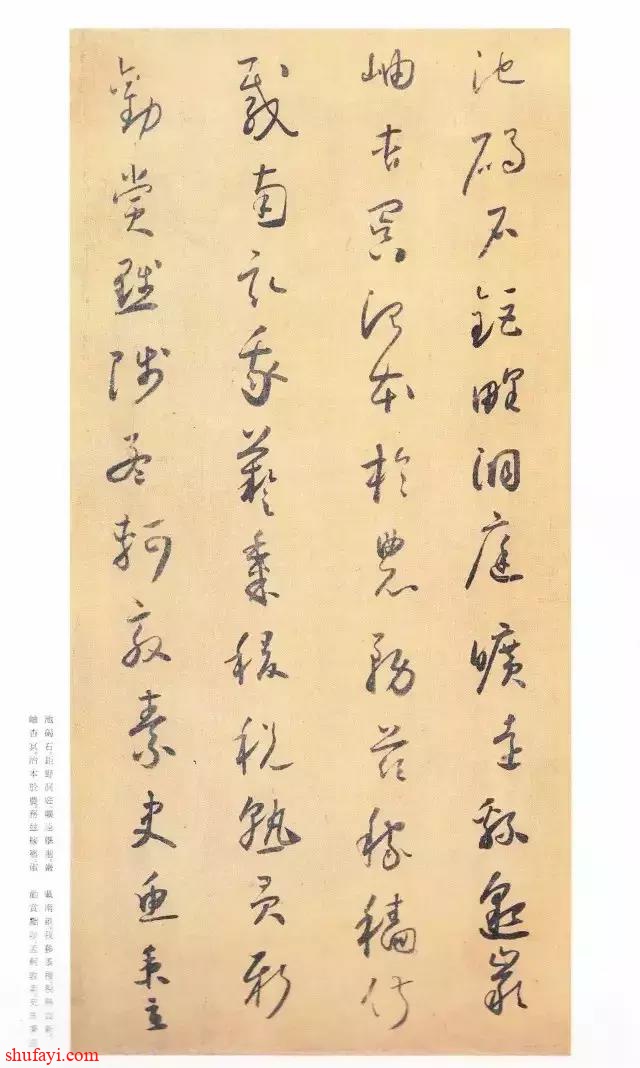 池碣石鉅野洞庭曠遠緜邈巖
岫杳冥治本於農務茲稼穡俶
載南畝我藝黍稷稅熟貢新
勸賞黜陟孟軻敦素史魚秉直
池碣石。鉅野洞庭。曠遠緜邈。巖
岫杳冥。治本於農。務茲稼穡。俶
載南畝。我藝黍稷。稅熟貢新。
勸賞黜陟。孟軻敦素。史魚秉直
shufayi.com